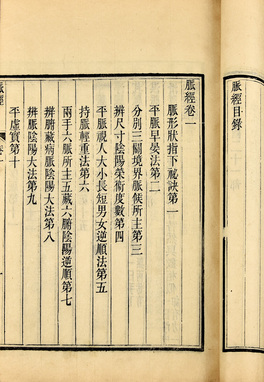 脈經目錄
脈經卷一
脈形狀指下秘訣第一
平脈早晏法第二
分別三關境界脈候所主第三
辨尺寸陰陽榮衞度數第四
平脈視人大小長短男女逆順法第五
持脈輕重法第六
兩手六脈所主五藏六腑陰陽逆順第七
辨臟腑病脈陰陽大法第八
辨脈陰陽大法第九
平虛實第十
脈經